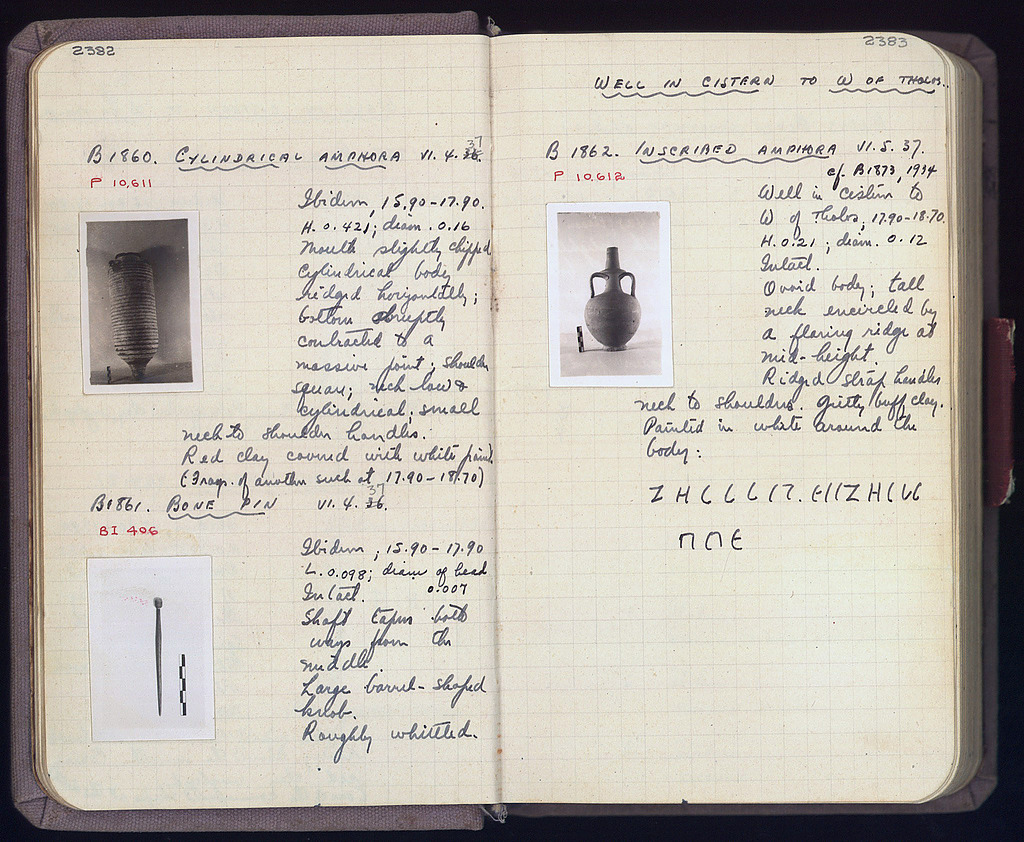 2382
B 1860. CYLINDRICAL AMPHORA VI. 4. 36.
37
P 10,611
Ibidem, 15.90-17.90.
H. 0.421; diam. 0.16
Mouth slightly chipped
Cylindrical body
ridged horizontally;
bottom abruptly
contracted to a
massive point; shoulder
square; neck low &
cylindrical; small
neck to shoulder handles.
Red clay covered with white paint
(Fragr. of another such at 17.90-18.70)
B1861. BONE PIN VI. 4. 36.
37
BI 406
Ibidem, 15.90-17.90
L. 0.098; diam of head
Intact. 0.007
Shaft tapers both
ways from the
middle.
Large barrel-shaped
knob.
Roughly whittled.
2383
WELL IN CISTERN TO W OF THOLOS.
B 1862. INSCRIBED AMPHORA VI. 5. 37.
P 10,612
cf. B1873, 1934
Well in Cistern to
W of Tholos, 17.90-18.70
H. 0.21; diam. 0.12
Intact.
Ovoid body; tall
neck encircled by
a flaring ridge at
mid-height.
Ridged strap handles
neck to shoulders. Gritty buff clay.
Painted in white around the
body: